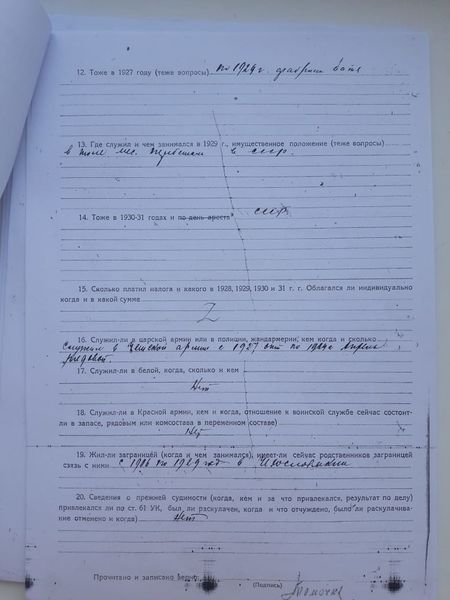 12. Тоже в 1927 году (теже вопросы) по 1929 г. фабрики
13. Где служил и чем занимался в 1929 г., имущественное положение (теже вопросы)
в в СССР.
14. Тоже в 1930-31 годах и по день ареста СССР
15. Сколько платил налога и какого в 1928, 1929, 1930 и 31 г. г. Облагался ли индивидуально
когда и в какой сумме
Z
16. Служил-ли в царской армии или в полиции, жандармерии, кем когда и сколько
Служил в Чешской армии с 1927 по
рядовой.
17. Служил-ли в белой, когда, сколько и кем
Нет
18. Служил-ли в Красной армии, кем и когда, отношение к воинской службе сейчас состоит-
ли в запасе, рядовым или комсостава в переменном составе)
Нет
19. Жил-ли заграницей (когда и чем занимался), имеет-ли сейчас родственников заграницей
связь с ними с 1906 по 1929 год в Чехословакии
20. Сведения о прежней судимости (когда, кем и за что привлекался, результат по делу)
привлекался ли по ст. 61 УК, был ли раскулачен, когда и что отчуждено, было ли раскулачива-
ние отменено и когда) Нет
Прочитано и записано верно:
(Подпись)